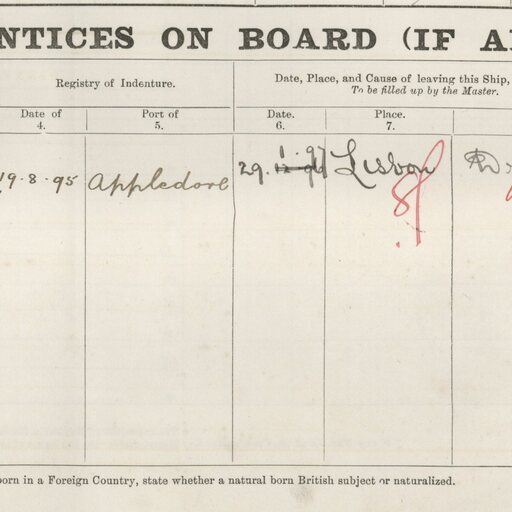 NTICES ON BOARD (IF A
Registry of Indenture.
Date, Place, and Cause of leaving this Ship,
To be filled up by the Master.
Date of
Port of
Date.
Place.
4.
5.
6.
7.
19.8.95 Appledore 29. 1.97 Lisbon
born in a Foreign Country, state whether a natural born British subject or naturalized.